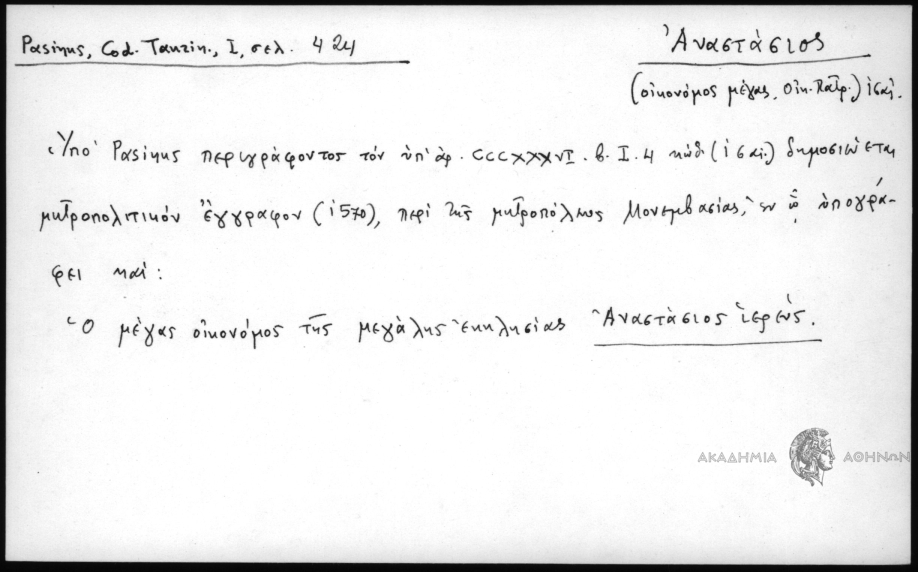 Pasinus, Cod. Taurin., I, σελ. 424
Ἀναστάσιος
(οἰκονόμος μέγας, Οἰκ. Πατρ.) ις΄ αἰ.
Ὑπὸ Pasinus περιγράφοντος τὸν ὑπ' ἀρ. CCCXXXVI. b. I. 4 κώδ (ις΄ αἰ.) δημοσιεύεται
μητροπολιτικόν ἔγγραφον (1570), περὶ τῆς μητροπόλεως Μονεμβασίας, ἐν ᾧ ὑπογρά-
φει καὶ:
Ὁ μέγας οἰκονόμος τῆς μεγάλης ἐκκλησίας Ἀναστάσιος ἱερεύς.
ΑΚΑΔΗΜΙΑ ΑΘΗΝΩΝ